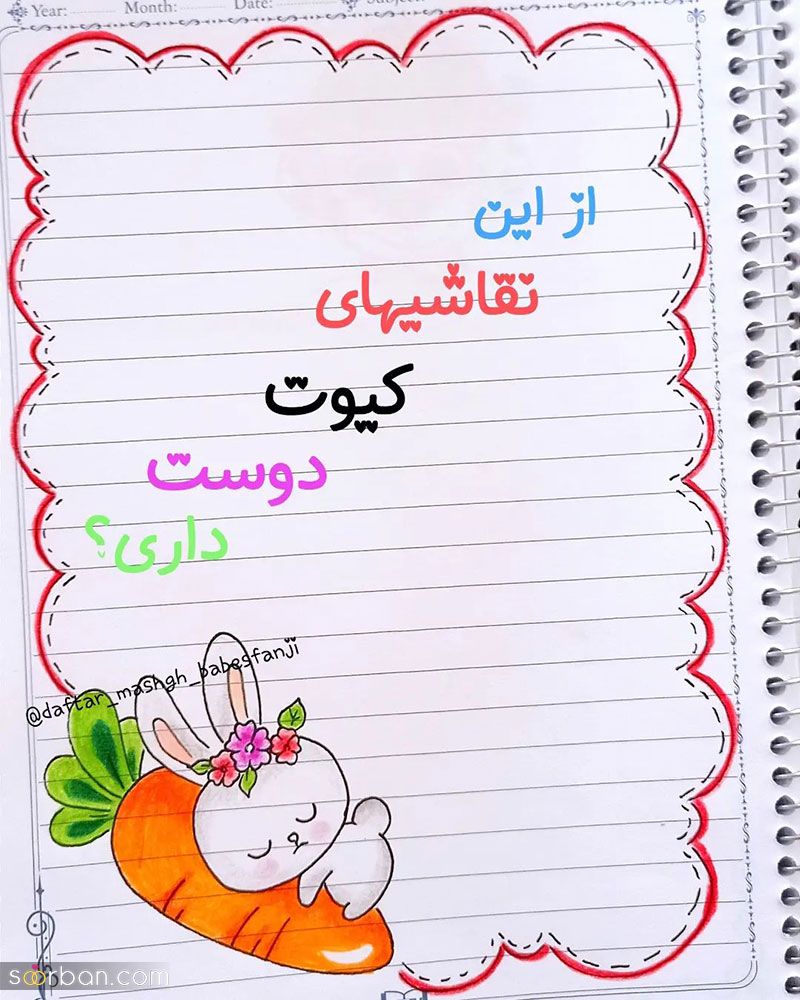 Year: Month: Date: Subject:
از این
نقاشیهای
کیوت
دوست
داری؟
@daftar_mashgh_babesfanji
soorban.com